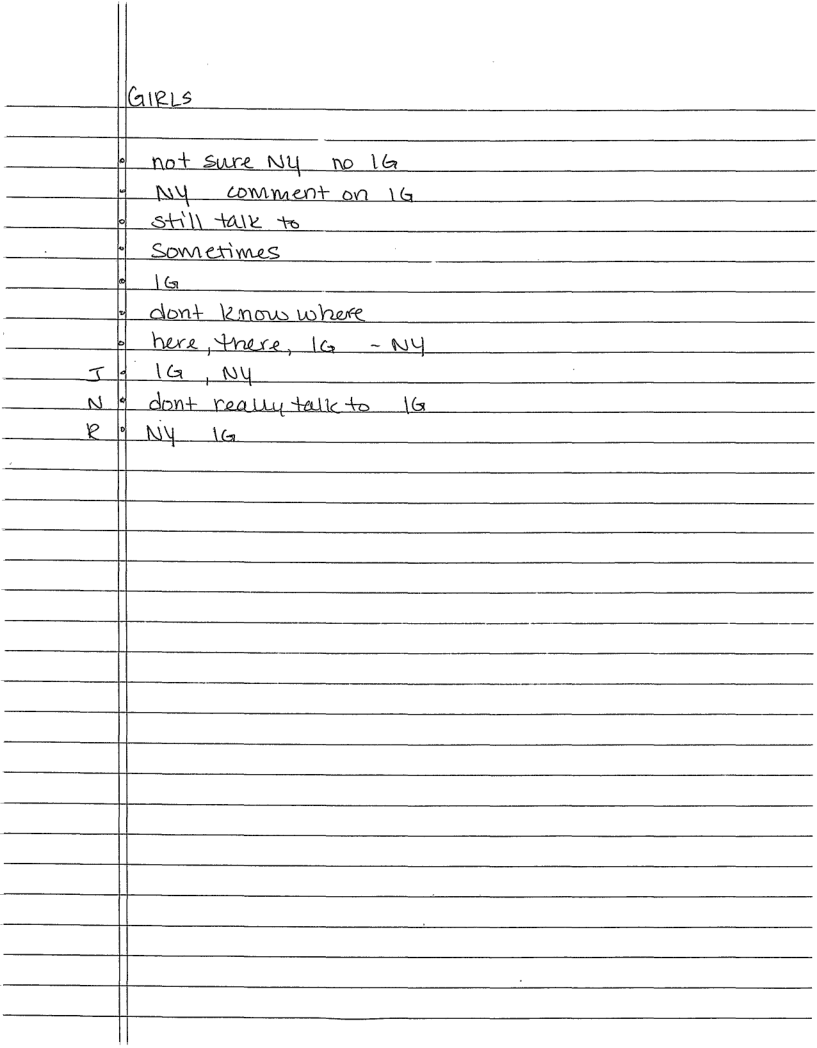 GIRLS
not sure NY no IG
NY comment on IG
still talk to
sometimes
IG
dont know where
here, there, IG - NY
J IG, NY
N dont really talk to IG
R NY IG